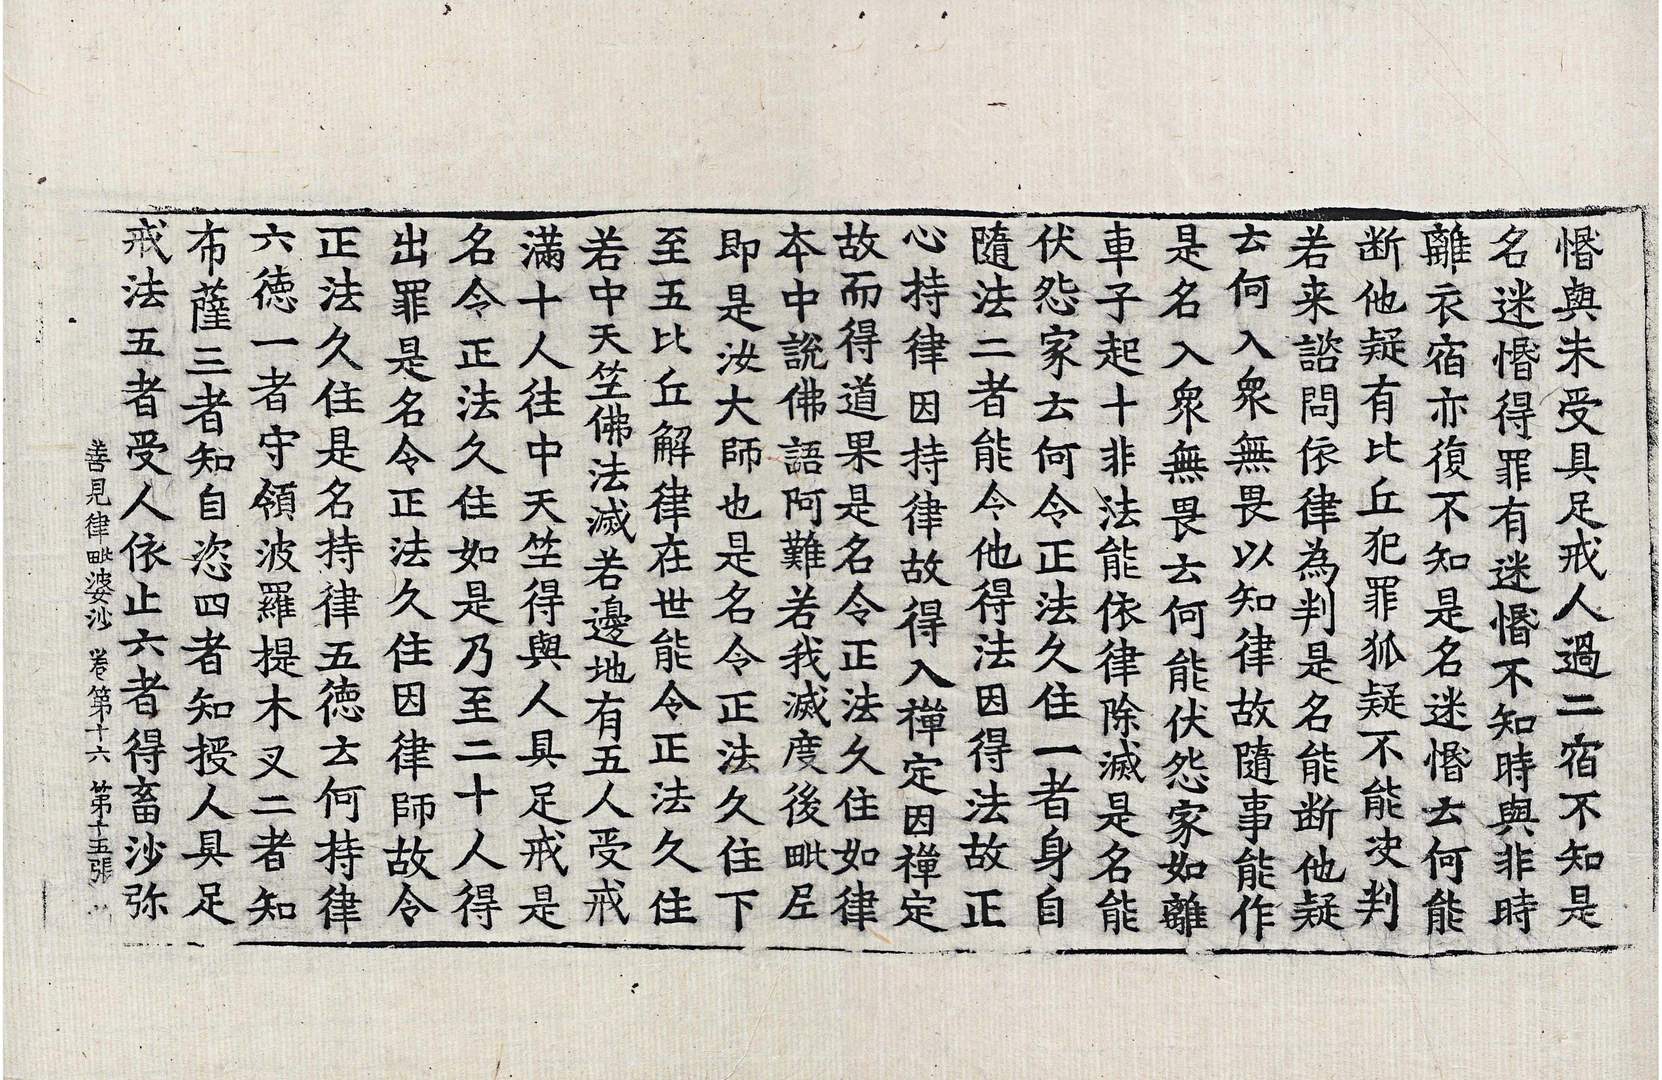 惛與未受具足戒人過二宿不知是
名迷惛得罪有迷惛不知時與非時
離衣宿亦復不知是名迷惛云何能
断他疑有比丘犯罪狐疑不能决判
若来諮問依律為判是名能断他疑
云何入衆無畏以知律故隨事能作
是名入衆無畏云何能伏怨家如離
車子起十非法能依律除滅是名能
伏怨家云何令正法久住一者身自
隨法二者能令他得法因得法故正
心持律因持律故得入禪定因禪定
故而得道果是名令正法久住如律
本中說佛語阿難若我滅度後毗尼
即是汝大師也是名令正法久住下
至五比丘解律在世能令正法久住
若中天竺佛法滅若邊地有五人受戒
滿十人往中天竺得與人具足戒是
名令正法久住如是乃至二十人得
出罪是名令正法久住因律師故令
正法久住是名持律五徳云何持律
六徳一者守領波羅提木叉二者知
布薩三者知自恣四者知授人具足
戒法五者受人依止六者得畜沙弥
善見律毗婆沙 卷第十六 第十五張